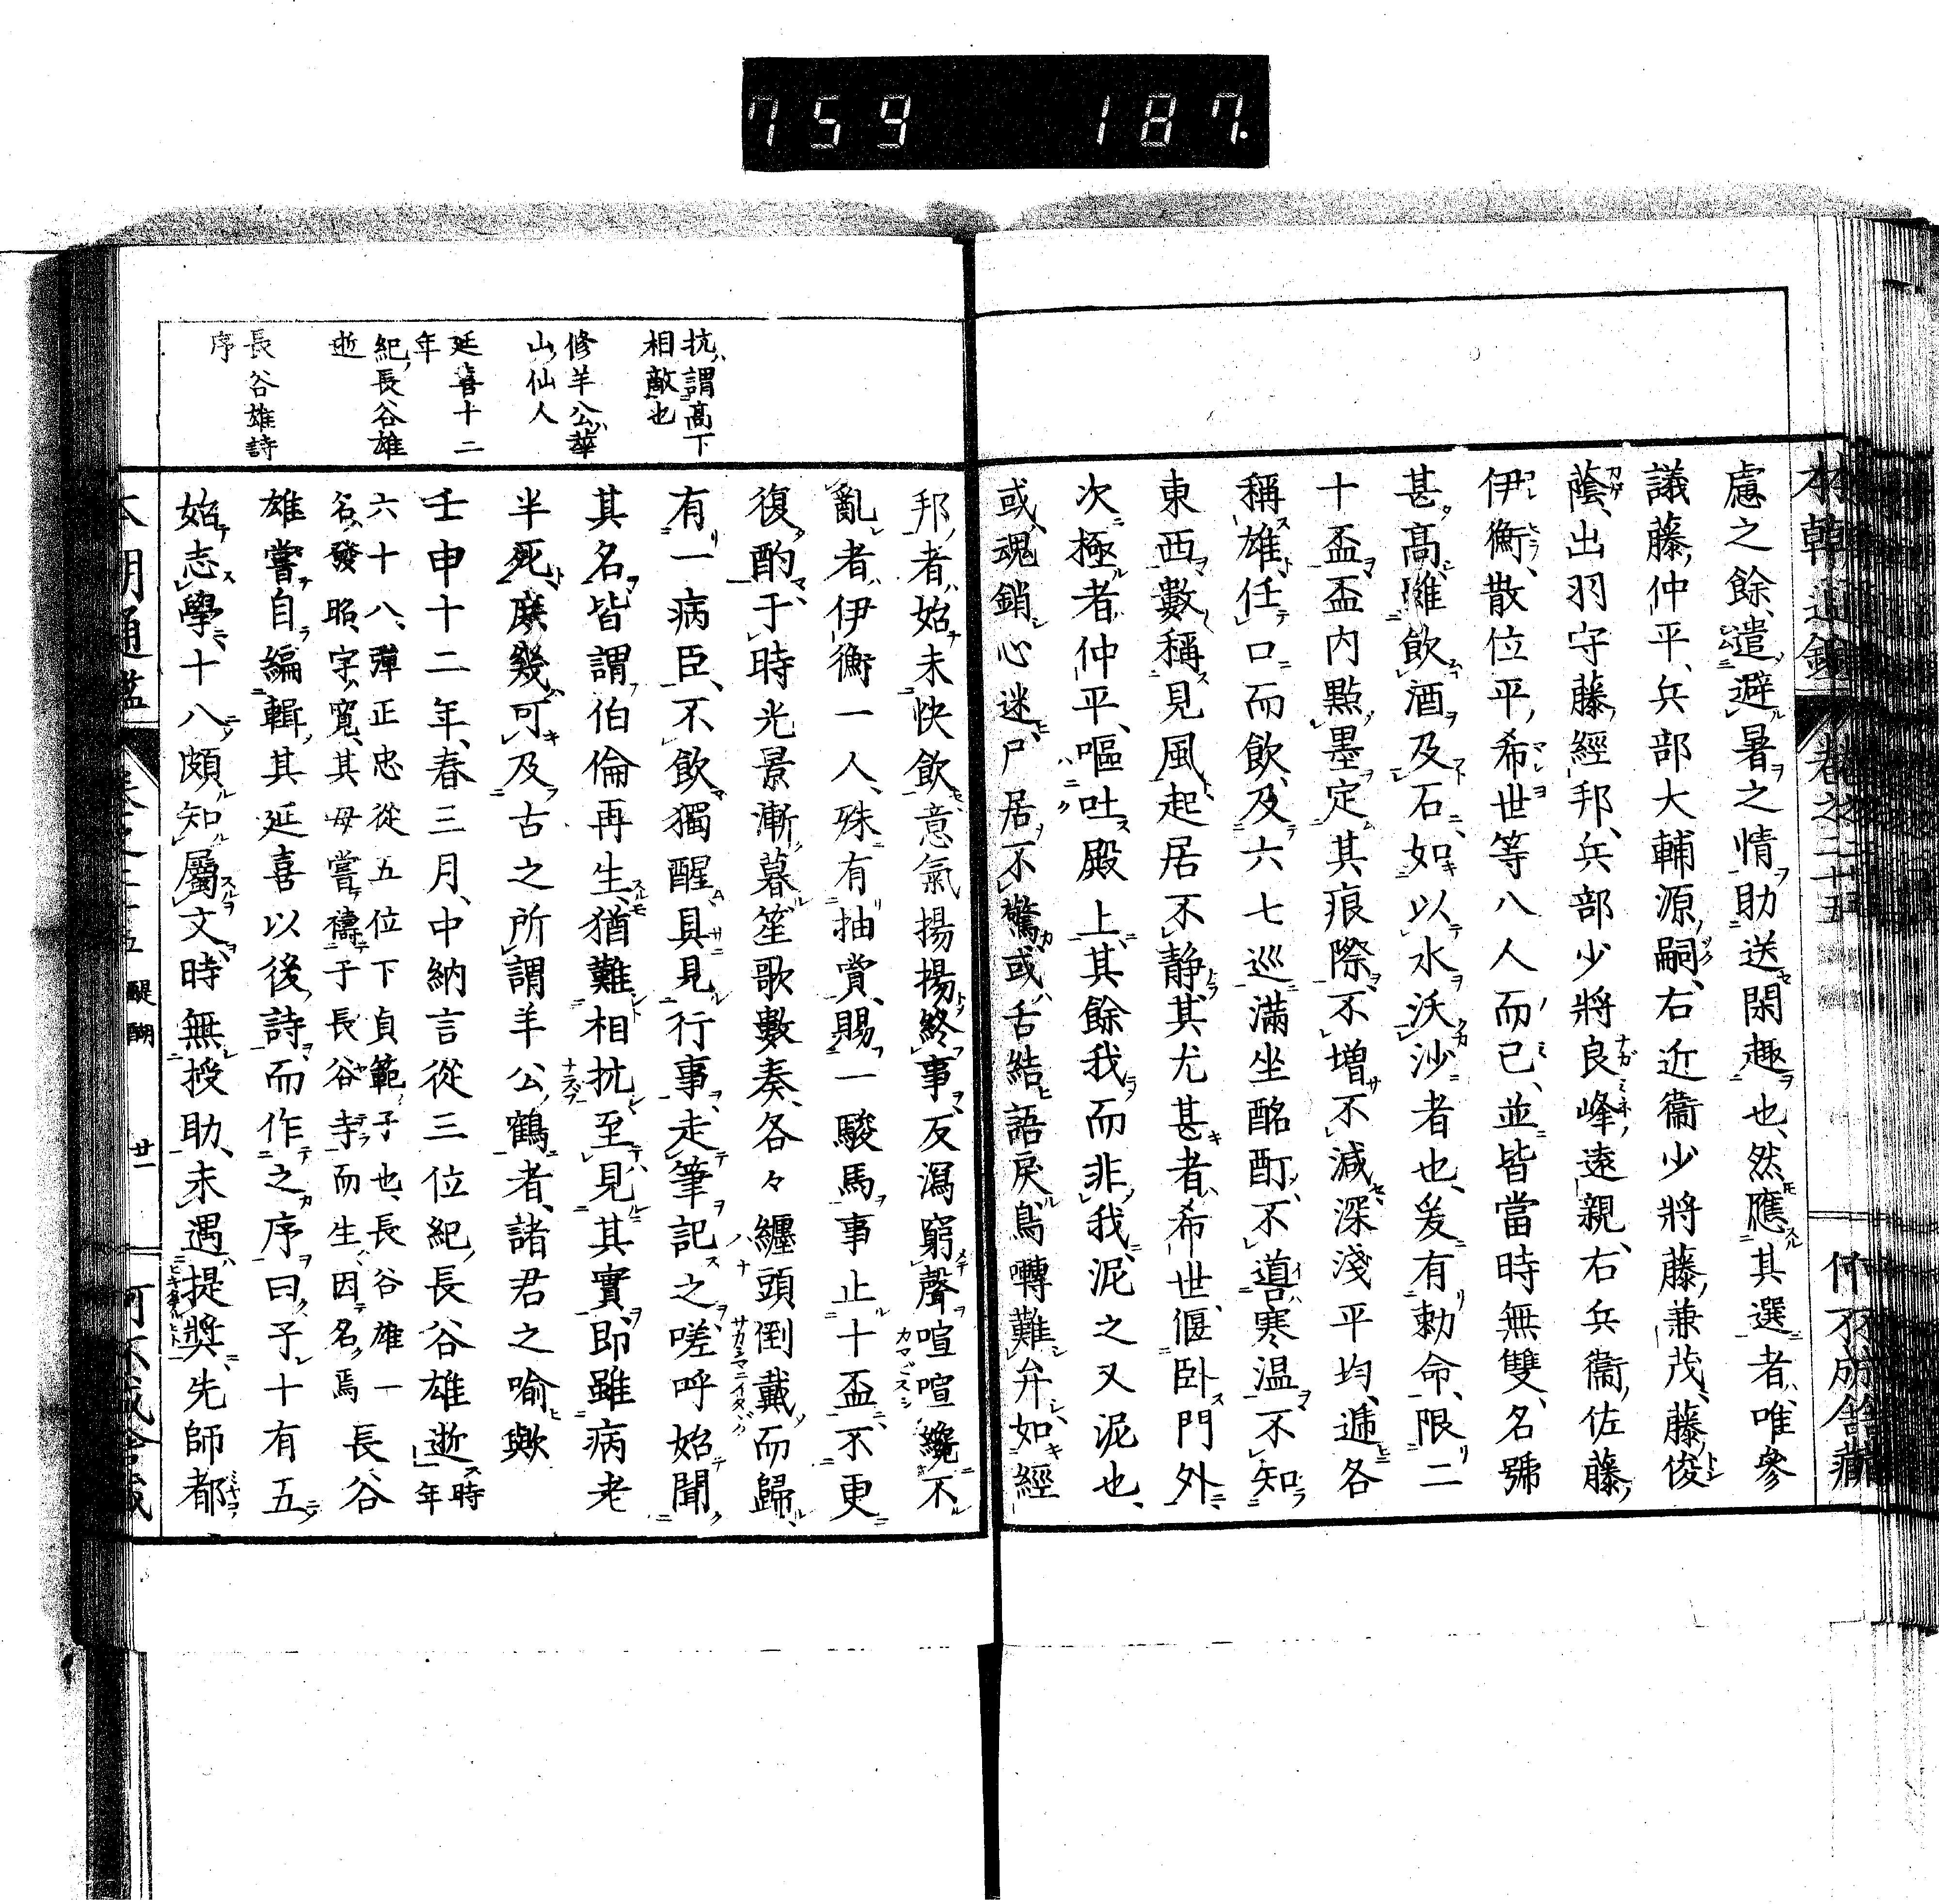 759 187.
慮之餘、遣避暑之情、助送閑趣也、然應其選者、唯參
議藤仲平、兵部大輔源嗣、右近衞少將藤兼茂、藤俊
蔭、出羽守藤經邦、兵部少將良峰遠親、右兵衞佐藤
伊衡、散位平希世等八人而已、並皆當時無雙、名號
甚高、雖飲酒及石、如以水沃沙者也、爰有勅命、限二
十盃、盃内點墨定其痕際、不增不減、深淺平均、遞各
稱雄、任口而飲、及六七巡、滿坐酩酊、不噵寒温、不知
東西、數稱見風、起居不静、其尤甚者、希世偃卧門外、
次極者、仲平、嘔吐殿上、其餘我而非我、泥之又泥也、
或魂銷心迷、尸居不驚、或舌結語戾、鳥囀難弁、如經
抗、謂高下
相敵也
修羊公、華
山仙人
延喜十二
年
紀長谷雄
逝
長谷雄詩
序
邦者、始未快飲、意氣揚揚、終事反瀉、窮聲喧喧、纔不
亂者、伊衡一人、殊有抽賞、賜一駿馬、事止十盃、不更
復酌、于時光景漸暮、笙歌數奏、各々纒頭、倒戴而歸、
有一病臣、不飲獨醒、具見行事、走筆記之、嗟呼始聞
其名、皆謂伯倫再生、猶難相抗、至見其實、即雖病老
半死、庶幾可及、古之所謂羊公鶴者、諸君之喻歟
壬申十二年、春三月、中納言從三位紀長谷雄逝時年
六十八、彈正忠從五位下貞範子也、長谷雄一
名發昭、字寬、其母嘗禱于長谷寺而生、因名焉 長谷
雄嘗自編輯其延喜以後詩、而作之序曰、予十有五
始志學、十八頗知屬文、時無援助、未遇提奬、先師都
本朝通鑑 卷之二十五 醍醐 廿一